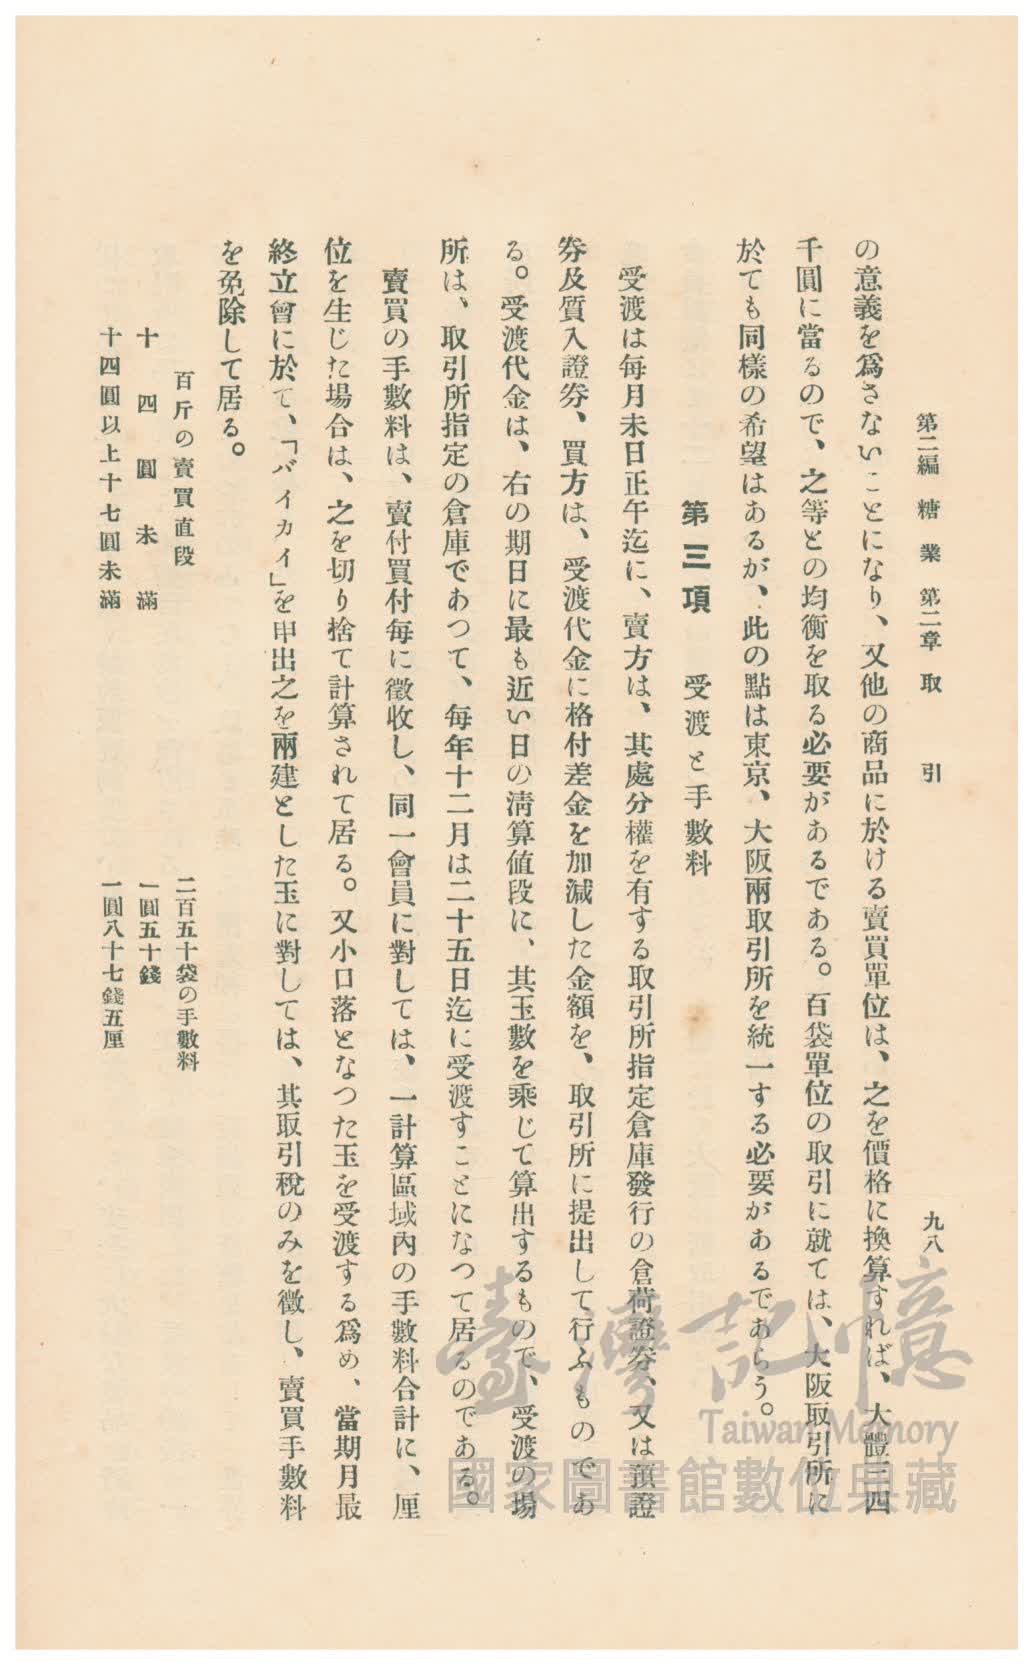 第二編 糖業 第二章 取引
九八
の意義を爲さないことになり、又他の商品に於ける賣買單位は、之を價格に換算すれば、大體三四
千圓に當るので、之等との均衡を取る必要があるである。百袋單位の取引に就ては、大阪取引所に
於ても同樣の希望はあるが、此の點は東京、大阪兩取引所を統一する必要があるであらう。
第三項 受渡と手數料
受渡は每月末日正午迄に、賣方は、其處分權を有する取引所指定倉庫發行の倉荷證券、又は預證
券及質入證券、買方は、受渡代金に格付差金を加減した金額を、取引所に提出して行ふものであ
る。受渡代金は、右の期日に最も近い日の淸算値段に、其玉數を乘じて算出するもので、受渡の場
所は、取引所指定の倉庫であつて、每年十二月は二十五日迄に受渡すことになつて居るのである。
賣買の手數料は、賣付買付每に徵收し、同一會員に對しては、一計算區域內の手數料合計に、厘
位を生じた場合は、之を切り捨て計算されて居る。又小口落となつた玉を受渡する爲め、當期月最
終立會に於て、「バイカイ」を申出之を兩建とした玉に對しては、其取引稅のみを徵し、賣買手數料
を免除して居る。
百斤の賣買直段 二百五十袋の手數料
十四圓未滿 一圓五十錢
十四圓以上十七圓未滿 一圓八十七錢五厘
臺灣記憶
Taiwan Memory
國家圖書館數位典藏